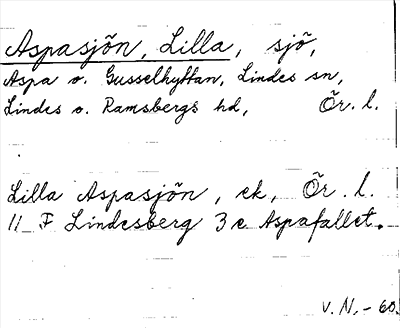 Aspasjön, Lilla, sjö,
Aspa o. Gusselhyttan, Lindes sn,
Lindes o. Ramsbergs hd, Ör. l.
Lilla Aspasjön, ek, Ör. l.
11 F Lindesberg 3 c Aspafallet.
V. N. - 60.